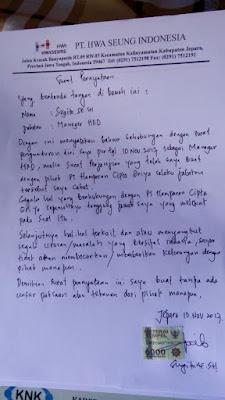 HWI
HWASEUNG
PT. HWA SEUNG INDONESIA
Jalan Krasak Banyuputih RT.09 RW.03 Kecamatan Kalinyamatan Kabupaten Jepara,
Provinsi Jawa Tengah, Indonesia 59467 Tel: (0291) 7512198 Fax: (0291) 7512191
Surat Pernyataan
Yang bertanda tangan di bawah ini :
Nama : Sugito SE SH
Jabatan : Manager HRD
Dengan ini menyatakan bahwa sehubungan dengan surat
pengunduran diri saya pertgl 10 NOV 2017 sebagai Manager
HRD, maka surat perjanjian yang telah saya buat
dengan pihak PT Hamparan Cipta Griya selaku jabatan
tersebut saya cabut.
Segala hal yang berhubungan dengan PT Hamparan Cipta
Griya sepenuhnya tanggung jawab saya yang melekat
pada saat itu.
Selanjutnya hal-hal terkait dan atau menyangkut
segala urusan/masalah yang bersifat rahasia, saya
tidak akan membocorkan/memberikan keterangan dengan
pihak manapun.
Demikian surat pernyataan ini saya buat tanpa ada
unsur paksaan atau tekanan dari pihak manapun.
Jepara 10 NOV 2017
METERAI
TEMPEL
6000
Sugito SE. SH
KNK